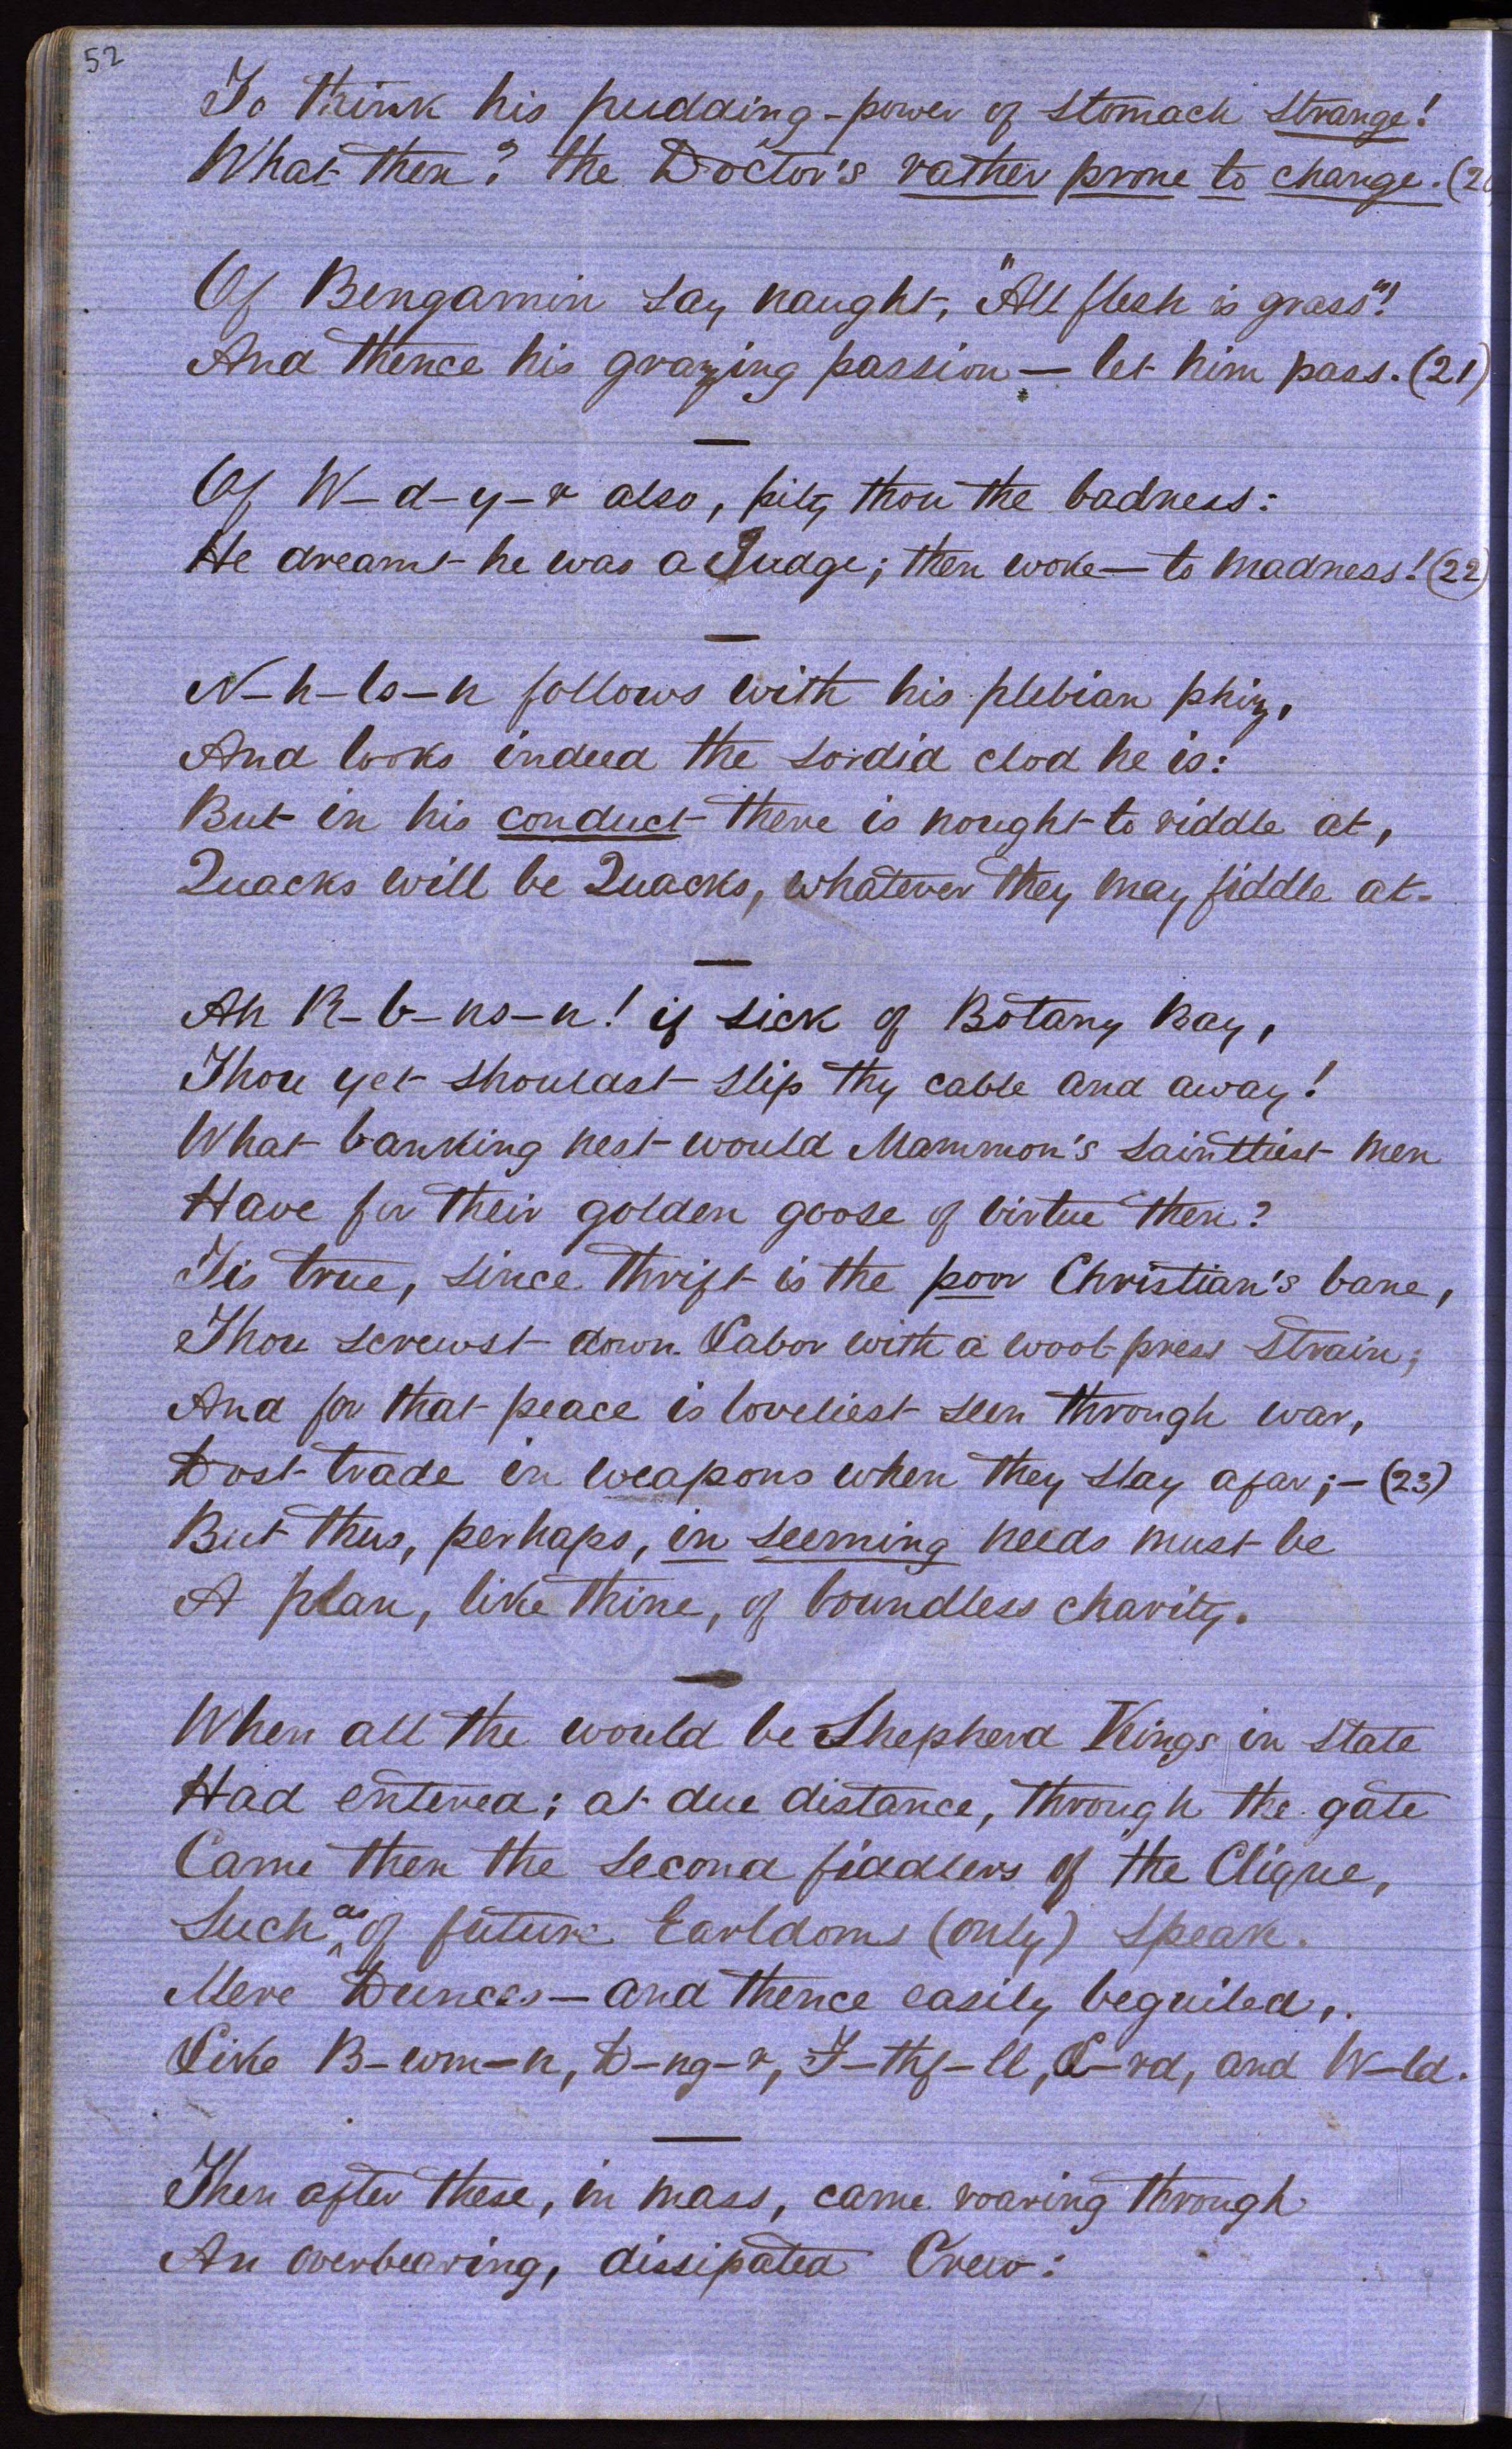 52
To think his pudding-power of stomach strange!
What then? the Doctor's rather prone to change. (20
Of Bengamin say naught, "All flesh is grass"!
And thence his grazing passion — let him pass. (21)
Of W-d-y-r also, pity thou the badness:
He dreamt he was a Judge; then woke — to madness! (22)
N-h-ls-n follows with his plebian phiz,
And looks indeed the sordid clod he is:
But in his conduct there is nought to riddle at,
Quacks will be Quacks, whatever they may fiddle at.
Ah R-b-ns-n! if sick of Botany Bay,
Thou yet shouldst slip thy cable and away!
What banking nest would Mammon's sainttiest men
Have for their golden goose of virtue then?
Tis true, since thrift is the poor Christian's bane,
Thou screwst down Labor with a wool-press strain;
And for that peace is loveliest seen through war,
Dost trade in weapons when they slay afar; - (23)
But thus, perhaps, in seeming needs must be
A plan, like thine, of boundless charity.
When all the would be Shepherd Kings in state
Had entered; at due distance, through the gate
Came then the second fiddlers of the Clique,
Such as of future Earldoms (only) speak.
Mere Dunces — and thence easily beguiled,
Like B-wm-n, D-ng-r, F-thf-ll, L-rd, and W-ld.
Then after these, in mass, came roaring through
An overbearing, dissipated Crew: